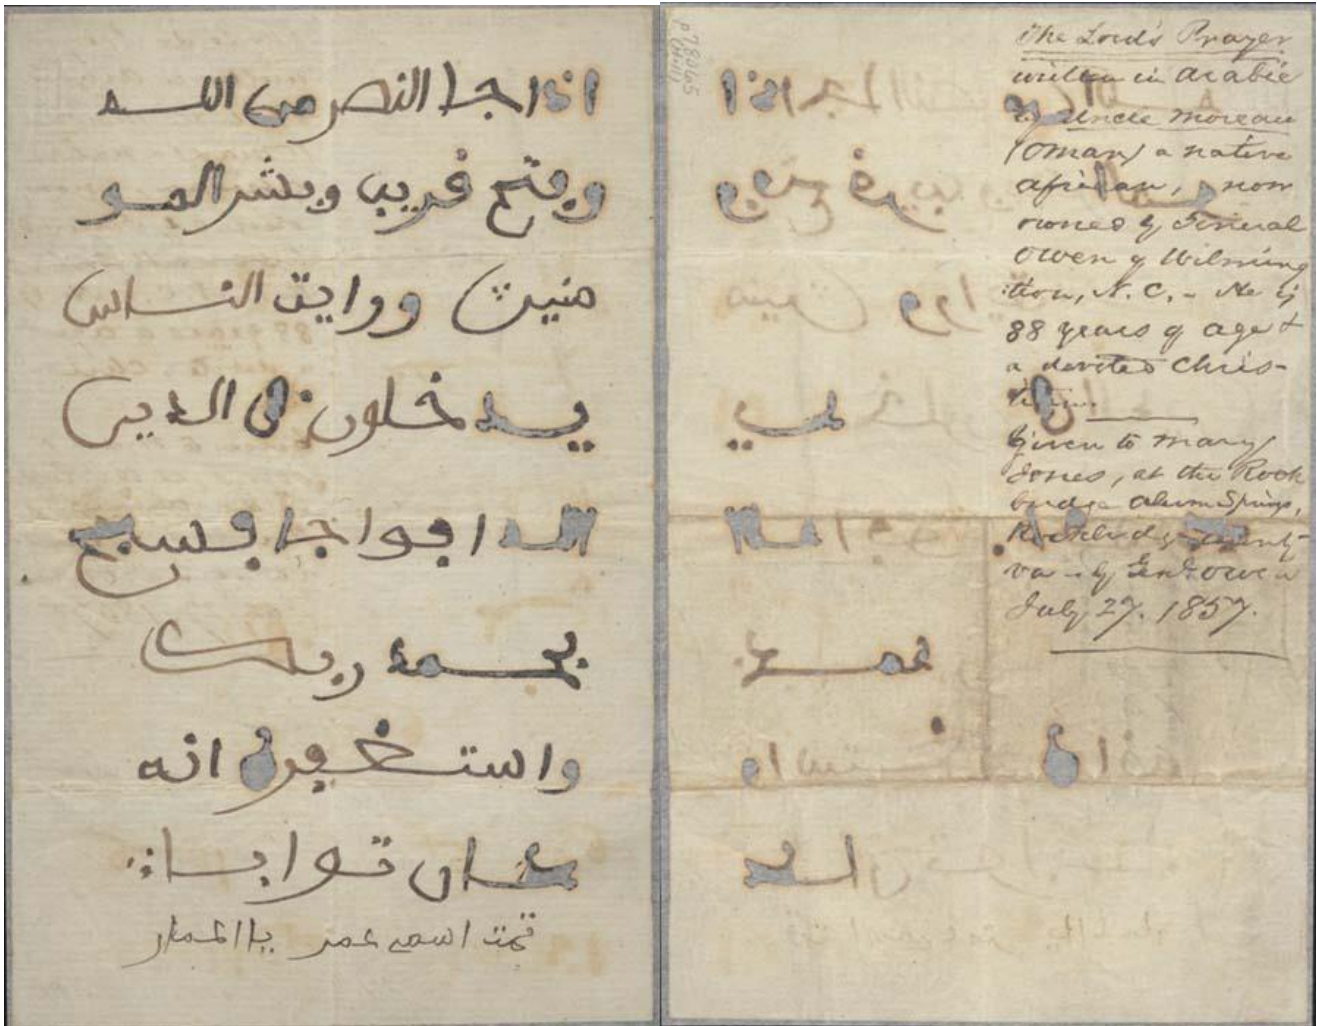 اذا جا النصر من الله
وفتح قريب وبشر المو
منين ورايت الناس
يدخلون في الدين
الله افواجا فسبح
بحمد ربك
واستغفره انه
كان توابا
تمت اسمي عمر
The Lord's Prayer
written in Arabic
by Uncle Moreau
(Omar) a native
African, now
owned by General
Owen of Wilming
ton, N.C. - He is
88 years of age &
a devoted Chris-
tian.
Given to Mary
Jones, at the Rock
bridge Alum Springs,
Rockbridge County
Va - by Genl. Owen
July 27. 1857.